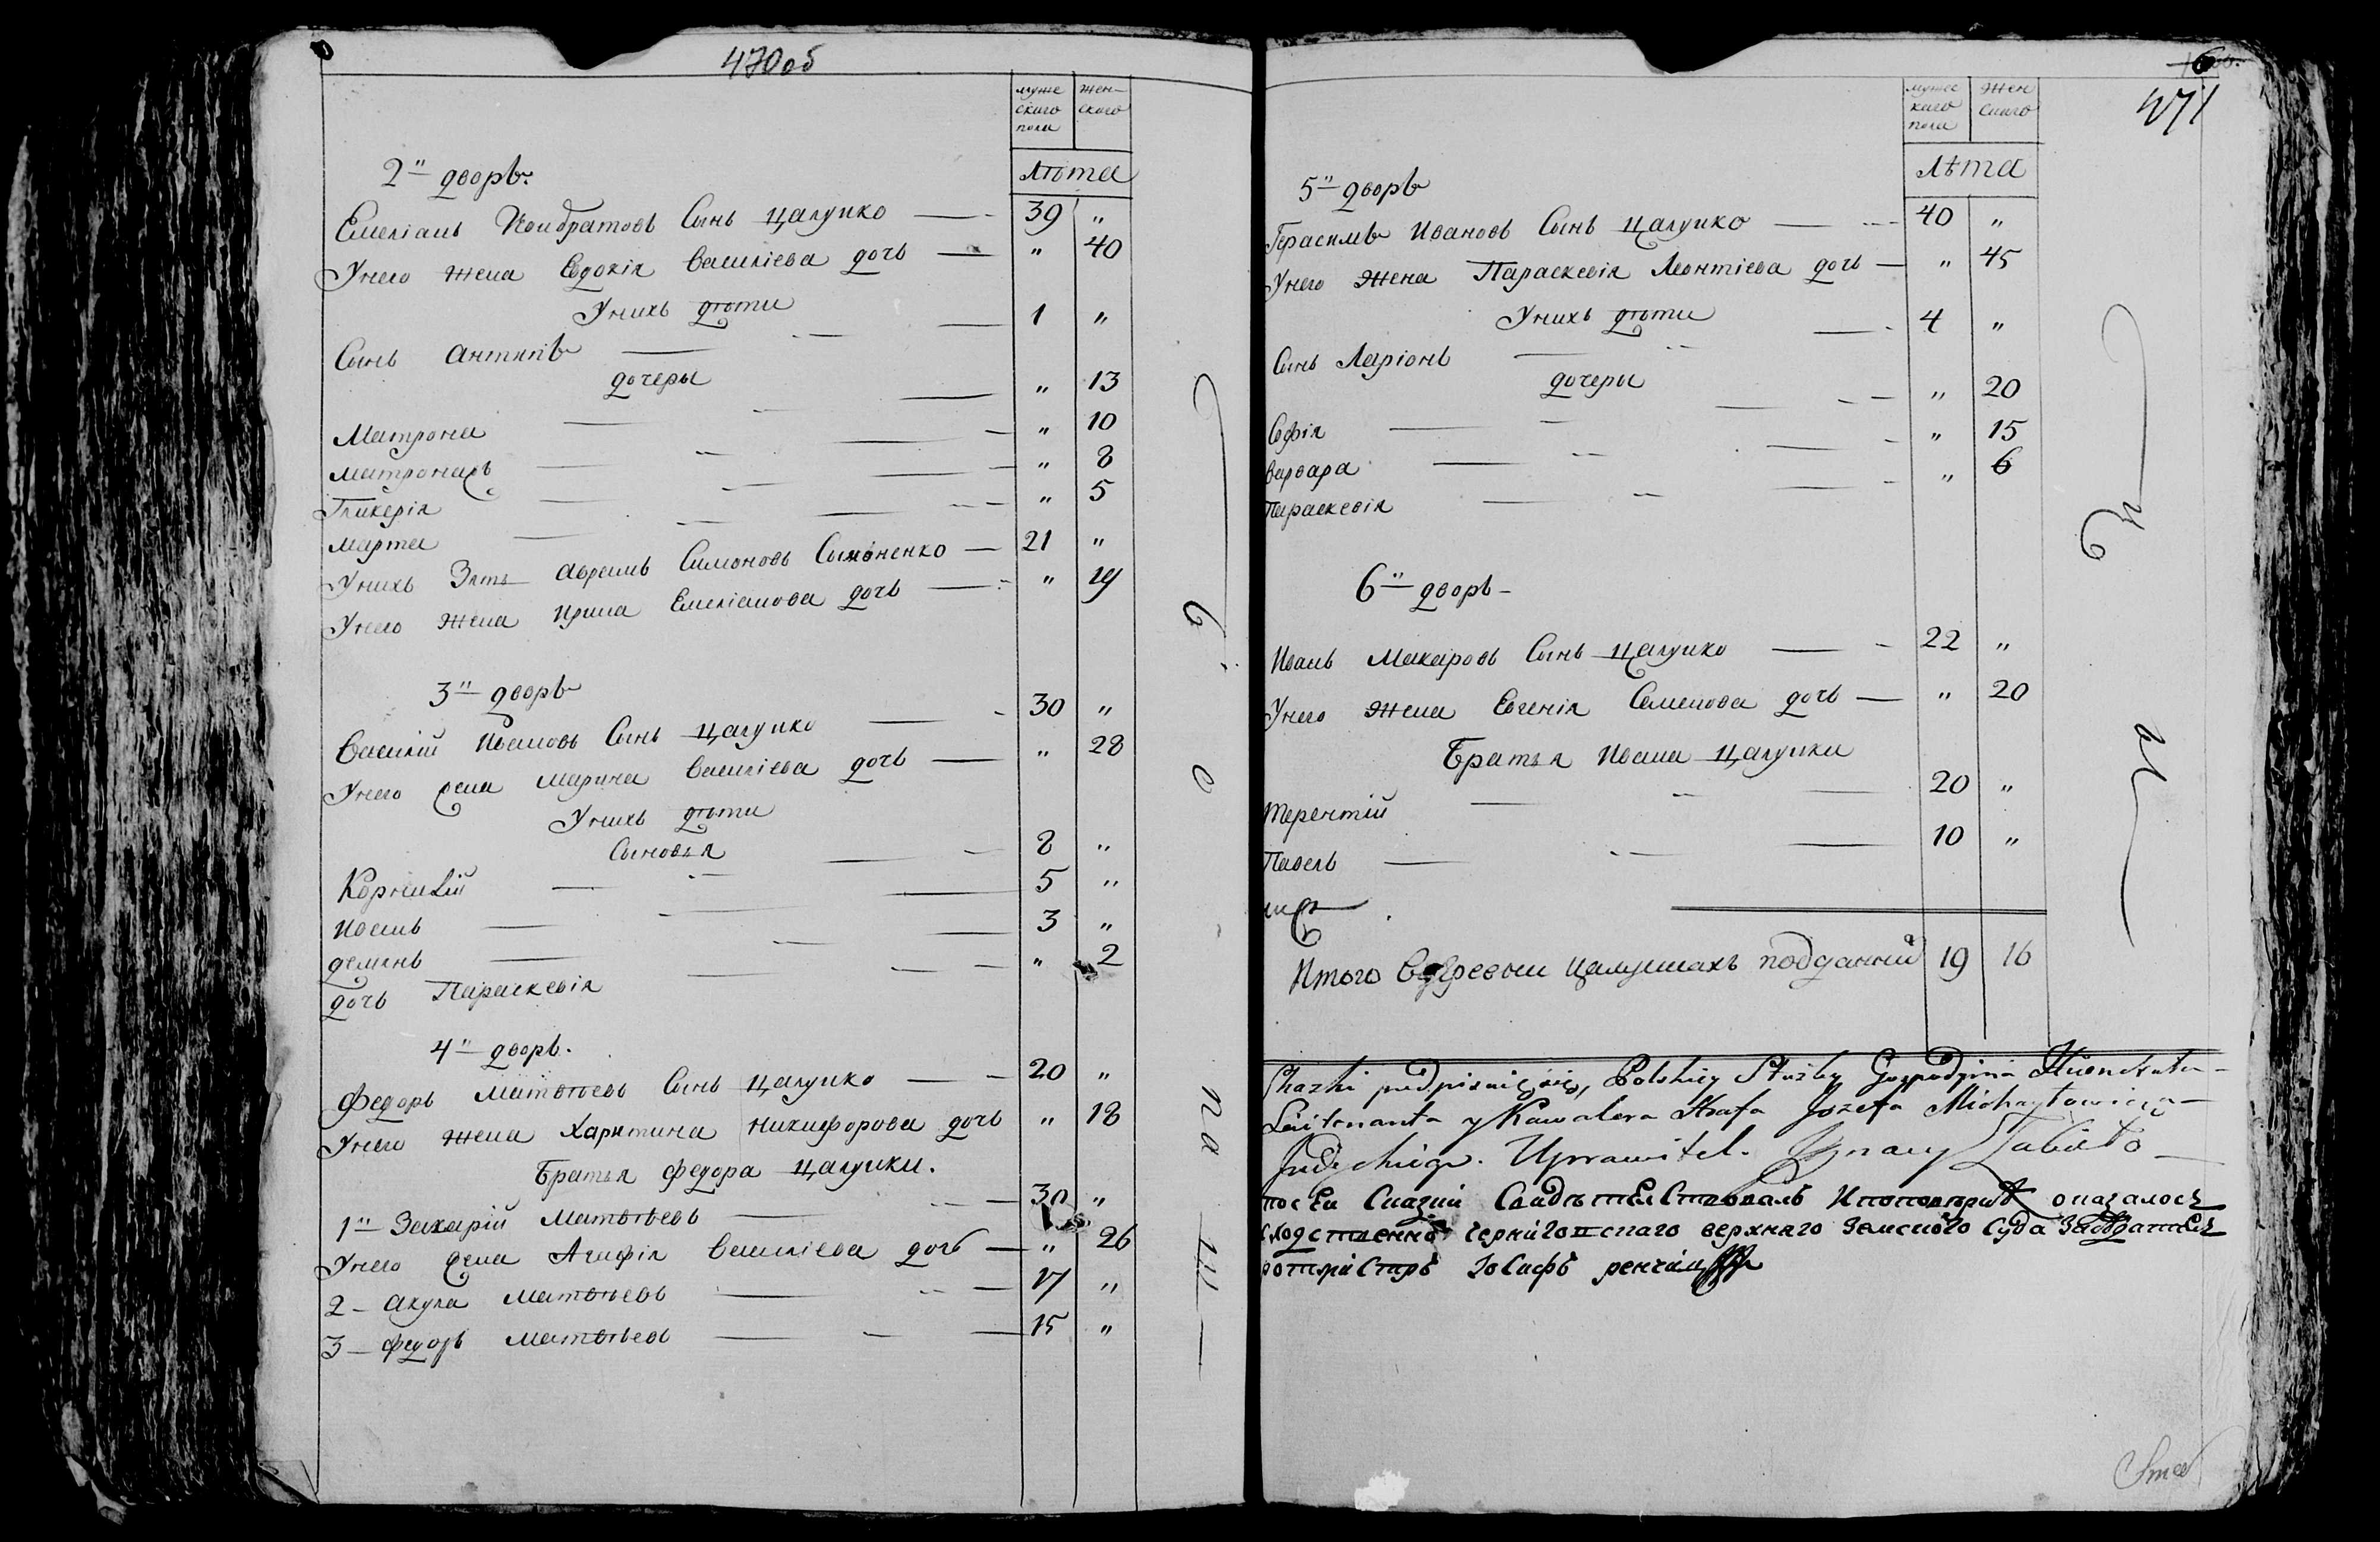 470об
муже
скаго
пола
жен-
скаго
лѣта
2й дворъ.
Емеліанъ Кондратовъ Сынъ цалуико 39 "
Унего жена Євдокія василіева дочь " 40
Унихъ дѣти
Сынъ антипъ 1 "
дочеры
Матрона " 13
матрона " 10
Гликерія " 8
марта " 5
Унихъ Зять авраамъ Симоновъ Сымоненко 21 "
Унего жена ирина Емеліанова дочь " 19
3й дворъ
Василій Ивановъ Сынъ цалуико 30 "
Унего жена марина василіева дочь " 28
Унихъ дѣти
Сыновья
Корнилій 8 "
иванъ 5 "
демянъ 3 "
дочь Параскевія " 2
4й дворъ.
Федоръ матвѣевъ Сынъ цалуико 20 "
Унего жена Харитина никифорова дочь " 18
Братья федора цалуики.
1й Захарій Матвѣевъ 30 "
Унего жена Агафія василіева дочь " 26
2 - акула матвѣевъ 17 "
3 - федоръ матвѣевъ 15 "
471
мужес
каго
пола
жен
скаго
лѣта
5й дворъ
Герасимъ Ивановъ Сынъ цалуико 40 "
Унего жена Параскевія Леонтіева дочь " 45
Унихъ дѣти
Сынъ Ларіонъ 4 "
дочеры
Софія " 20
варвара " 15
Параскевія " 6
6й дворъ -
Иванъ Макаровъ Сынъ цалуико 22 "
Унего жена Евгенія Семенова дочь " 20
Братья Ивана цалуики
терентій 20 "
Павелъ 10 "
Итого вдеревни цалуиках подданний 19 16
Skazki podpisuię się, Polskiey Służby Gospodyna
Leitenanta y Kawalera Hrafa Jozefa Michayłowicza
Judyckiego. Uprawitel. Ignacy
посеи Сказки Свидѣтелствовалъ ипоповѣрки оказалось
сходственно черниговскаго верхняго земского суда заседатель
ротмистръ Іосифъ